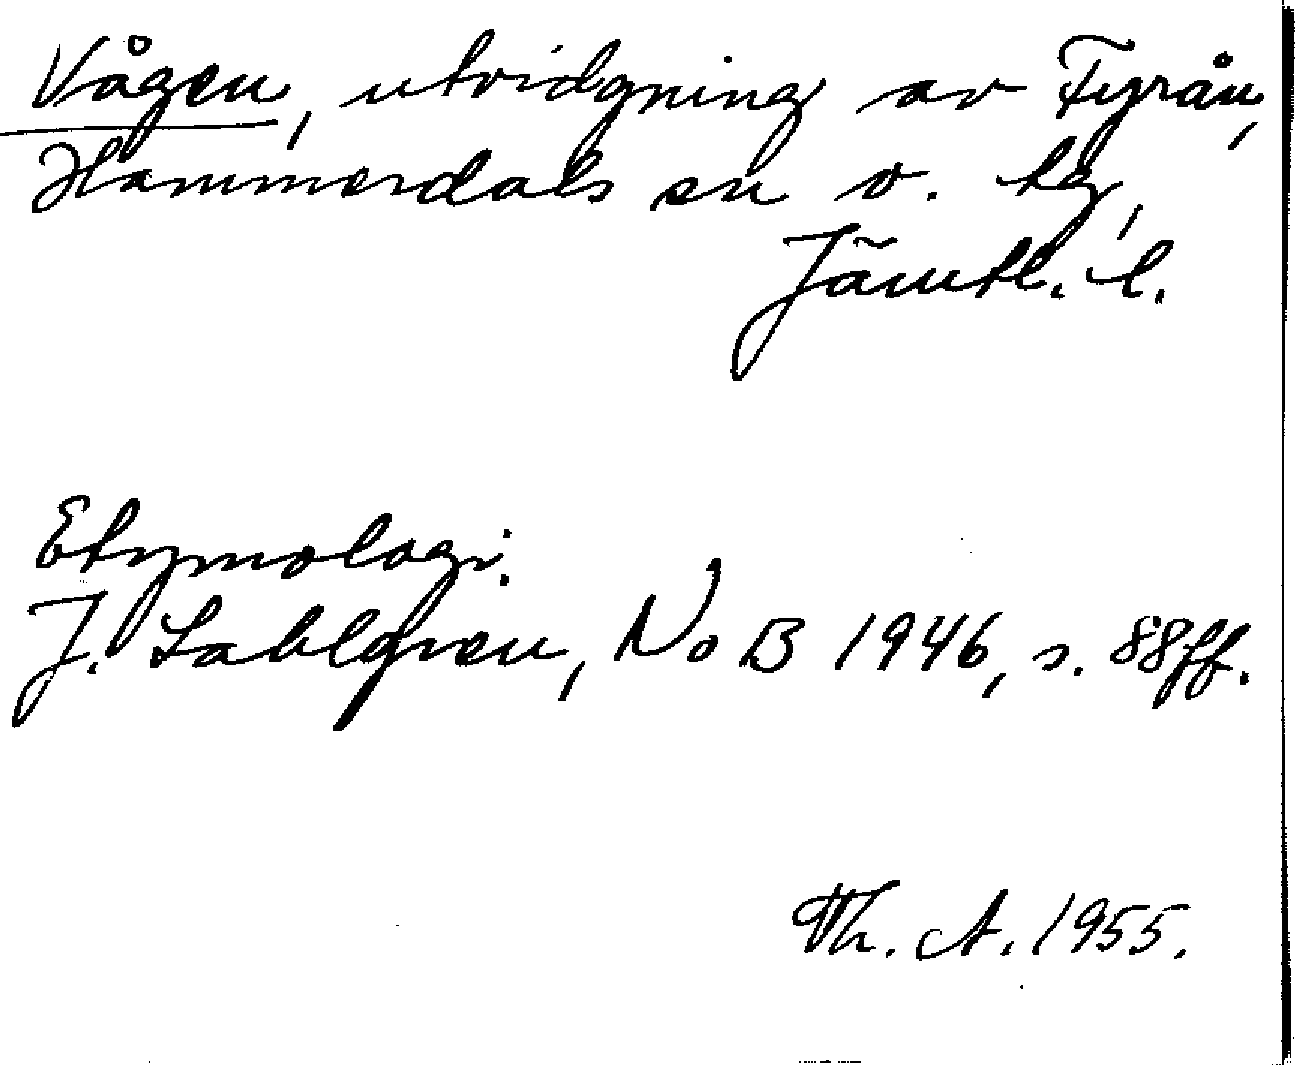 Vågen, utvidgning av Fyrån,
Hammerdals sn o. tg,
Jämtl. l.
Etymologi.
J. Sahlgren, NoB 1946, s. 88ff.
Th. A. 1955.